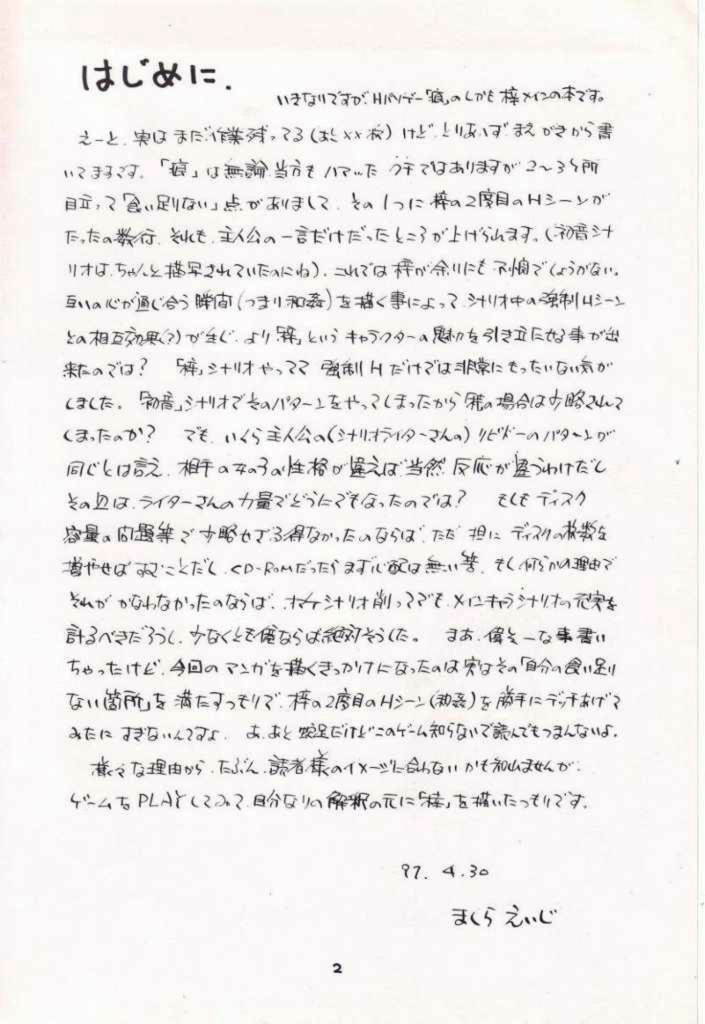 はじめに.
いきなりですが、Hパソゲー「痕」のしかも 梓メインの本です。
えーと、実は まだ作業残ってる(あと××枚)けど、とりあいず まえがきから書
いてますです。「痕」は無論、当方も ハマった クチではありますが 2〜3ヶ所
目立って「食い足りない」点がありまして、その1つに 梓の2度目のHシーンが
たったの数行、それも、主人公の一言だけだったところが上げられます。(初音シナ
リオは、ちゃんと描写されていたのにね)、これでは 梓が余りにも 不憫でしょうがない。
互いの心が通じ合う瞬間(つまり和姦)を描く事によって、シナリオ中の強制Hシーン
との相互効果(?)が生じ、より「梓」という キャラクターの魅力を引き立たせる事が出
来たのでは? 「梓」シナリオやってて 強制Hだけでは非常にもったいない気が
しました。「初音」シナリオでそのパターンをやってしまったから 梓の場合は少略されて
しまったのか? でも、いくら主人公の(シナリオライターさんの)リビドーのパターンが
同じとは言え、相手の女の子の性格が違えば当然、反応が違うわけだし
その辺は、ライターさんの力量でどうにでもなったのでは? もしも ディスク
容量の問題等で 少略せざる得なかったのならば、ただ 担に ディスクの枚数を
増やせば すむことだし、CD-ROMだったら まず心配は無い筈、もし何らかの理由で
それが かなわなかったのならば、オマケシナリオ削ってでも、メインキャラシナリオの充実を
計るべきだろうし、少なくとも俺ならば絶対そうした。 まあ、偉そーな事書い
ちゃったけど、今回の マンガを描くきっかけになったのは 実はその「自分の食い足り
ない箇所」を 満たすつもりで、梓の2度目のHシーン(和姦)を 勝手にデッチあげて
みたに すぎないんですよ. あ、あと 蛇足だけど このゲーム知らないで読んでもつまんないよ。
様々な理由から、たぶん、読者様のイメージに合わない かも知れませんが、
ゲームを PLAYしてみて、自分なりの 解釈の元に「梓」を描いたつもりです.
97. 4.30
まくら えいじ
2